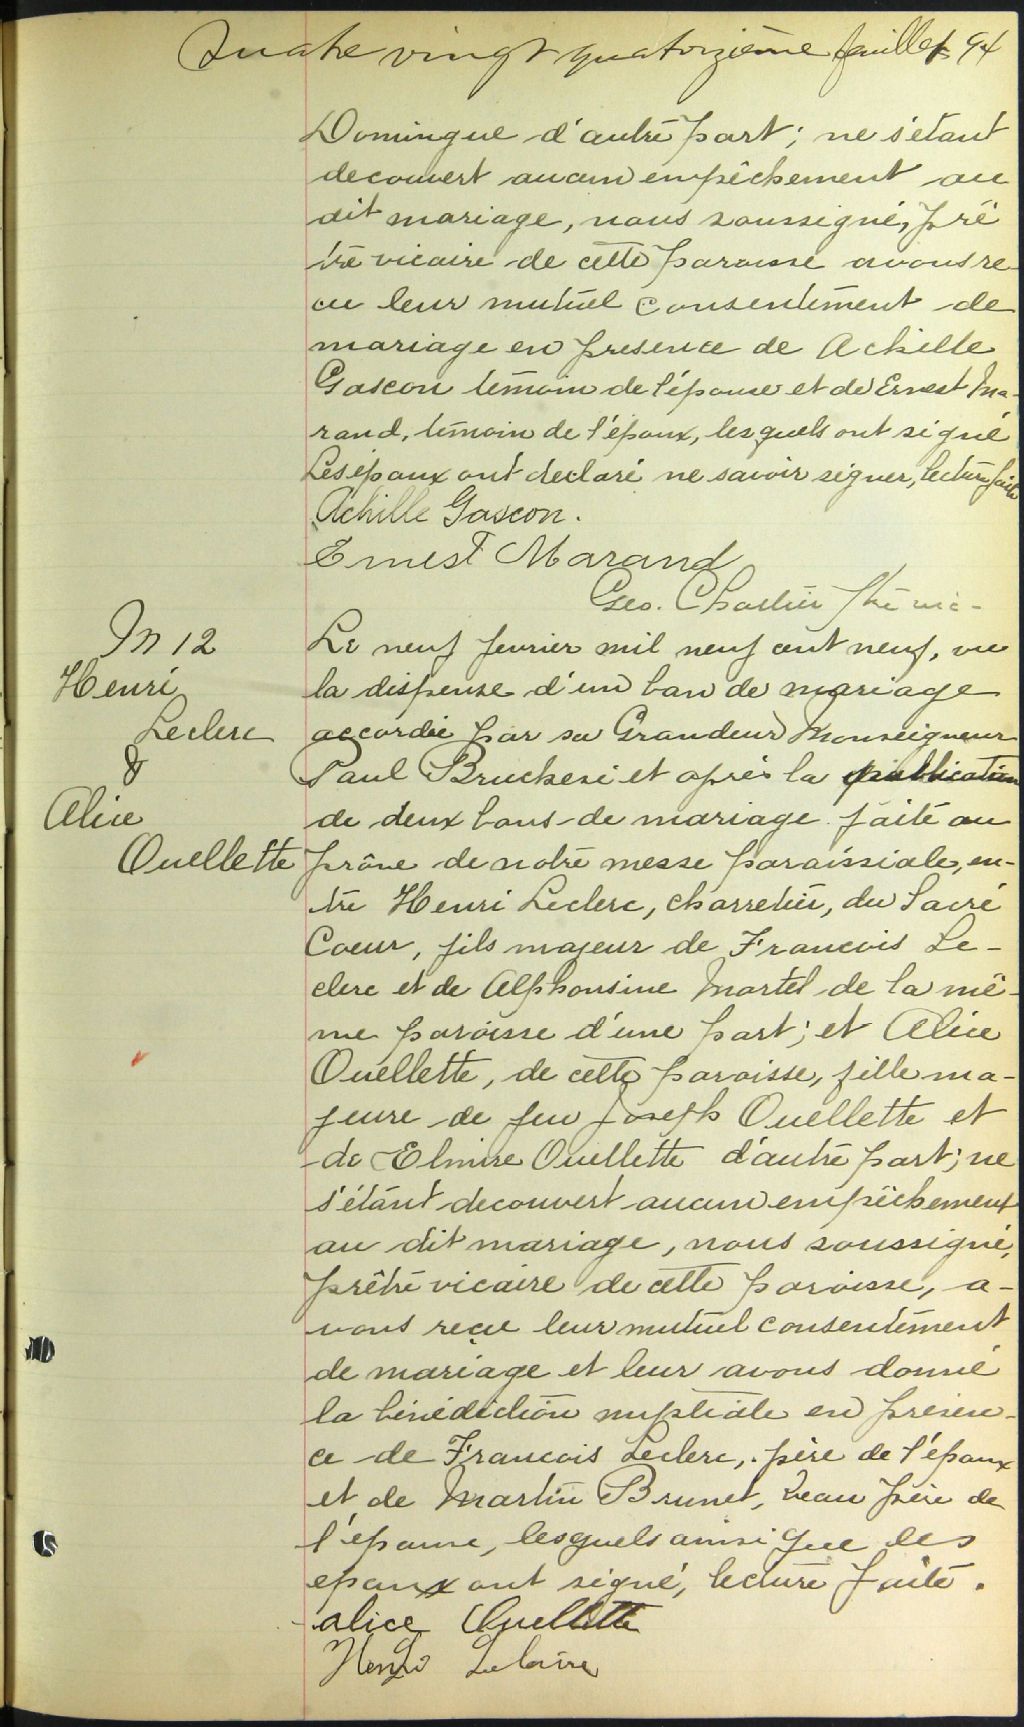 Quatre vingt quatorzième feuillet 94
Domingue d'autre part; ne s'étant
decouvert aucun empêchement au
dit mariage, nous soussigné, prê
tre vicaire de cette paroisse avons re-
cu leur mutuel consentement de
mariage en presence de Achille
Gascon temoin de l'épouse et de Ernest Ma-
rand, temoin de l'époux, lesquels ont signé
Les époux ont declaré ne savoir signer, lecture faite
Achille Gascon.
Ernest Marand
Geo. Chartier ptre vic-
M 12
Henri
Leclerc
&
Alice
Ouellette
Le neuf fevrier mil neuf cent neuf, vu
la dispense d'un ban de mariage
accordée par sa Grandeur Monseigneur
Paul Bruchesi et après la publication
de deux bans de mariage faite au
prône de notre messe paroissiale, en-
tre Henri Leclerc, charretier, du Sacré
Coeur, fils majeur de Francois Le-
clerc et de Alphonsine Martel de la mê-
me paroisse d'une part; et Alice
Ouellette, de cette paroisse, fille ma-
jeure de feu Joseph Ouellette et
de Elmire Ouellette d'autre part; ne
s'étant decouvert aucun empêchement
au dit mariage, nous soussigné,
prêtre vicaire de cette paroisse, a-
vons reçu leur mutuel consentement
de mariage et leur avons donné
la bénédiction nuptiale en présen-
ce de Francois Leclerc, père de l'époux
et de Martin Brunet, beau père de
l'épouse, lesquels ainsi que les
epoux ont signé, lecture faite.
alice Ouellette